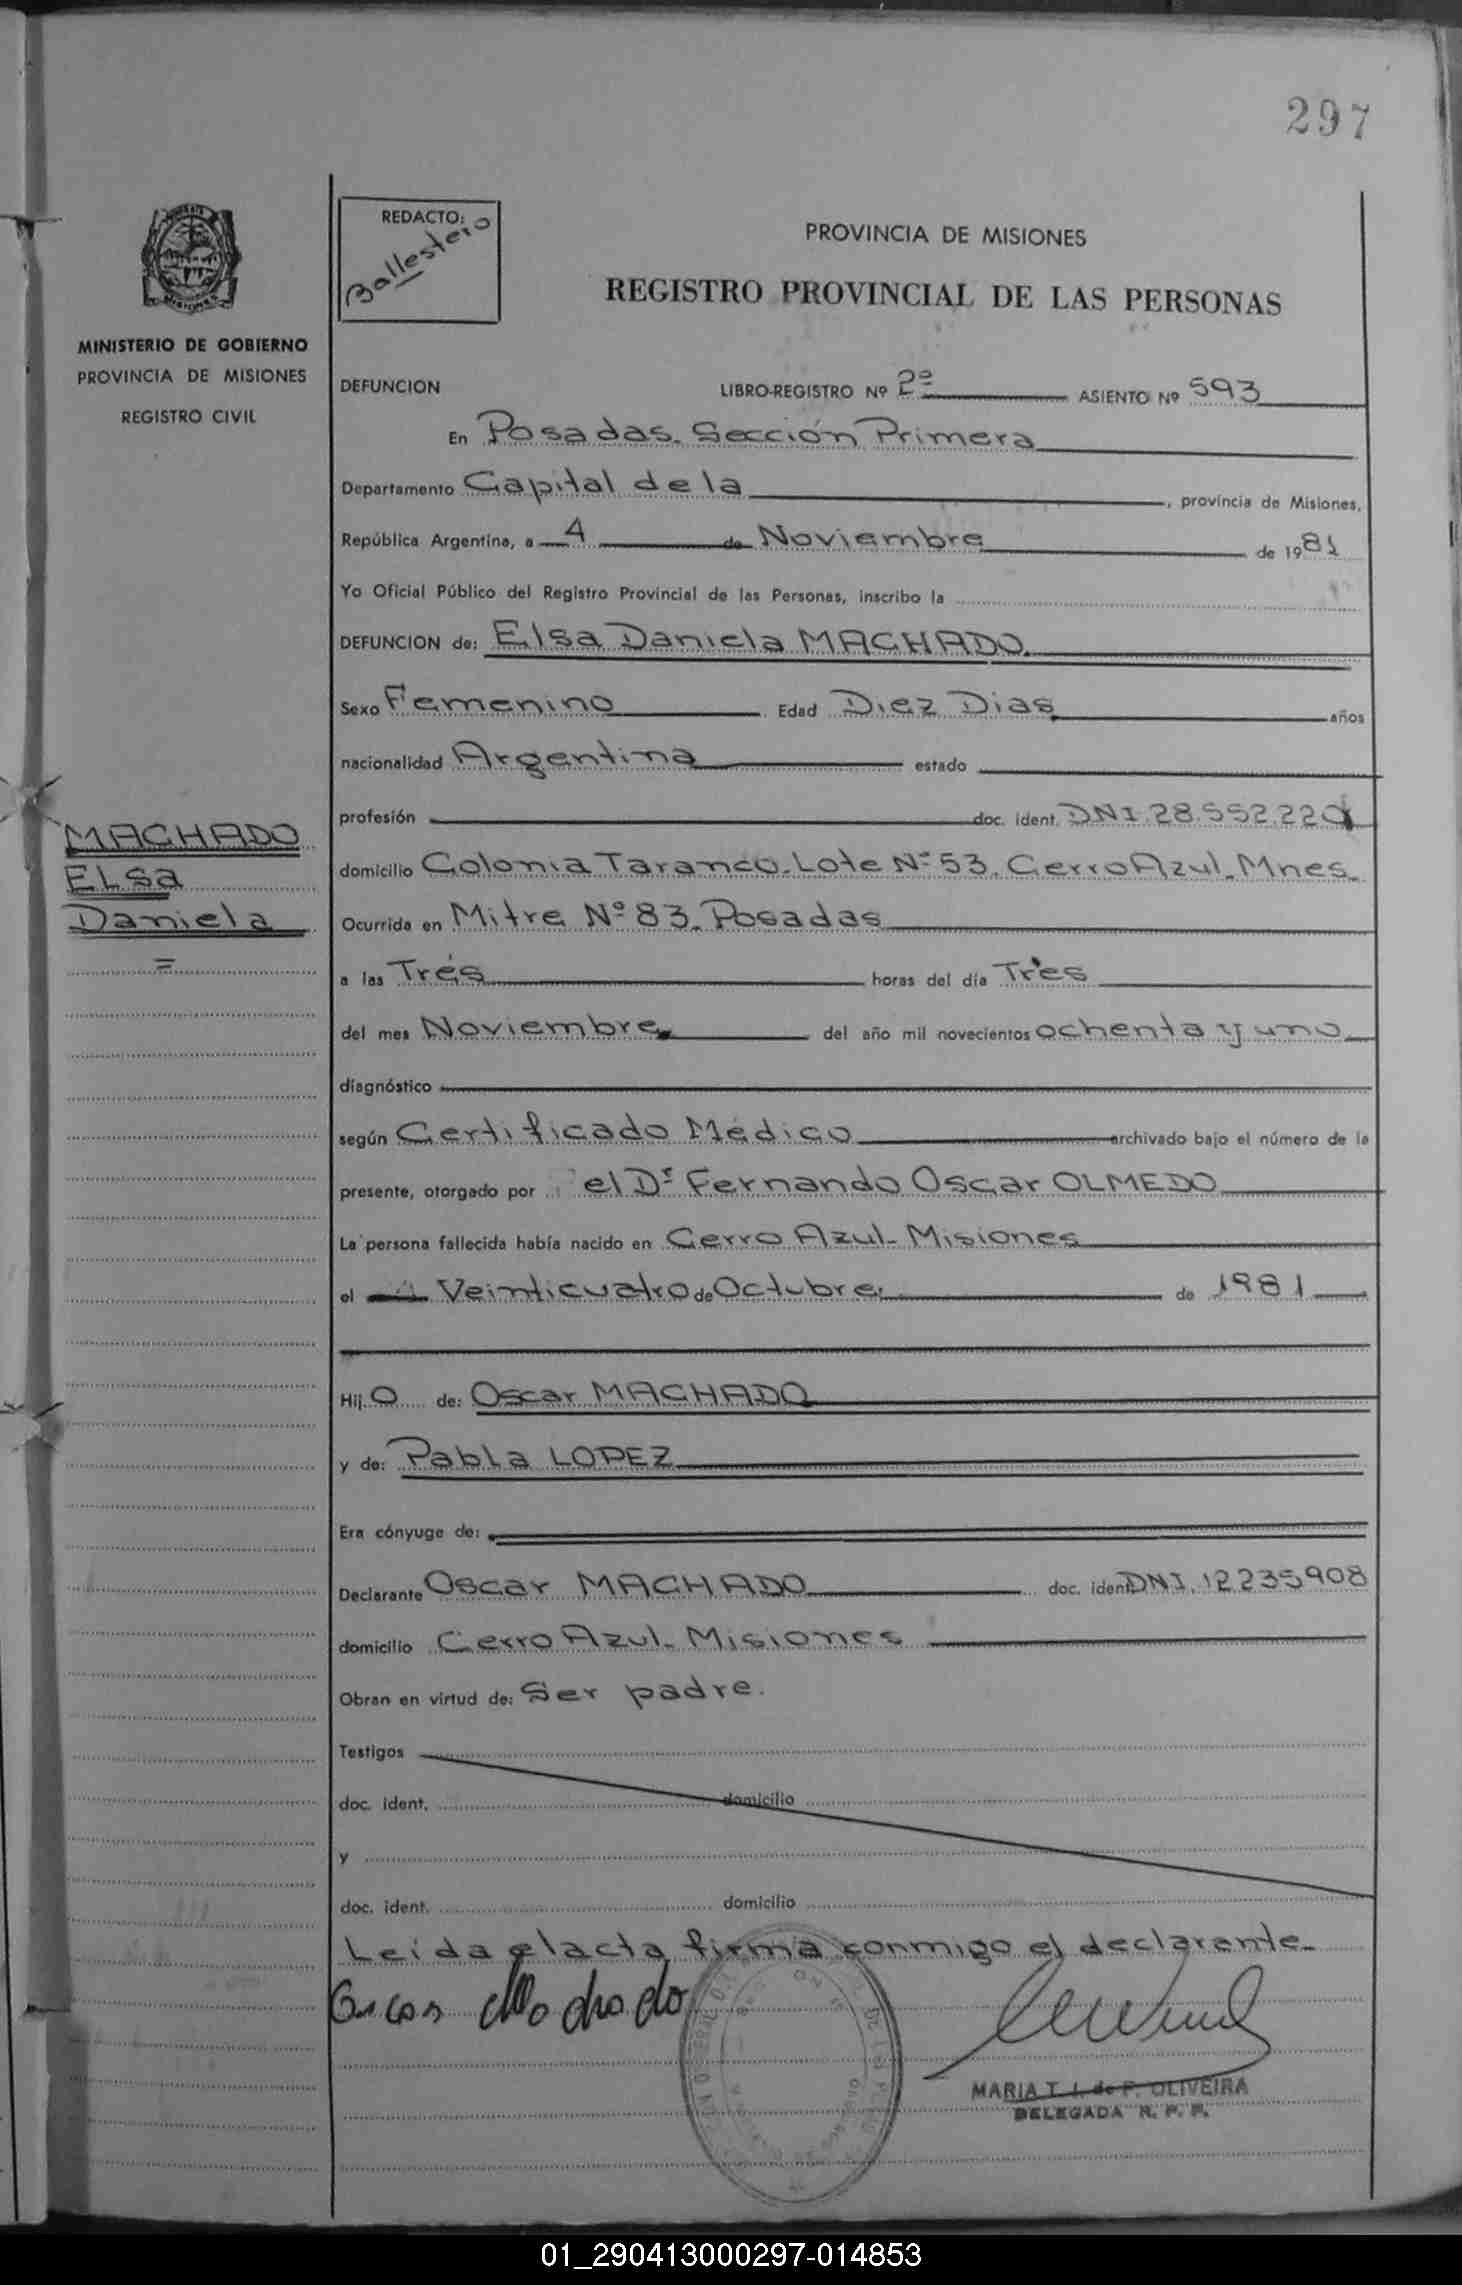 297
REDACTO:
Ballestero
PROVINCIA DE MISIONES
REGISTRO PROVINCIAL DE LAS PERSONAS
MISIONES
MINISTERIO DE GOBIERNO
PROVINCIA DE MISIONES
REGISTRO CIVIL
DEFUNCION LIBRO-REGISTRO Nº 2º ASIENTO Nº 593
En Posadas. Sección Primera
Departamento Capital de la, provincia de Misiones,
República Argentina, a 4 de Noviembre de 1981
Yo Oficial Público del Registro Provincial de las Personas, inscribo la
DEFUNCION de: Elsa Daniela MACHADO.
Sexo Femenino Edad Diez Dias años
nacionalidad Argentina estado
profesión doc. ident. DNI 28.552.220
MACHADO
ELSa
Daniela
=
domicilio Colonia Taranco. Lote Nº 53. Cerro Azul. Mnes.
Ocurrida en Mitre Nº 83. Posadas
a las Trés horas del día Tres
del mes Noviembre del año mil novecientos ochenta y uno
diagnóstico
según Certificado Médico archivado bajo el número de la
presente, otorgado por el Dr Fernando Oscar OLMEDO
La persona fallecida había nacido en Cerro Azul- Misiones
el Veinticuatro de Octubre. de 1981
Hij O de: Oscar MACHADO
y de: Pabla LOPEZ
Era cónyuge de:
Declarante Oscar MACHADO doc. ident. DNI. 12235908
domicilio Cerro Azul- Misiones
Obran en virtud de: Ser padre.
Testigos
doc. ident. domicilio
y
doc. ident. domicilio
Leída el acta firma conmigo el declarante.
Oscar Machado
MARIA T. I. de F. OLIVEIRA
DELEGADA R. P. P.
01_290413000297-014853